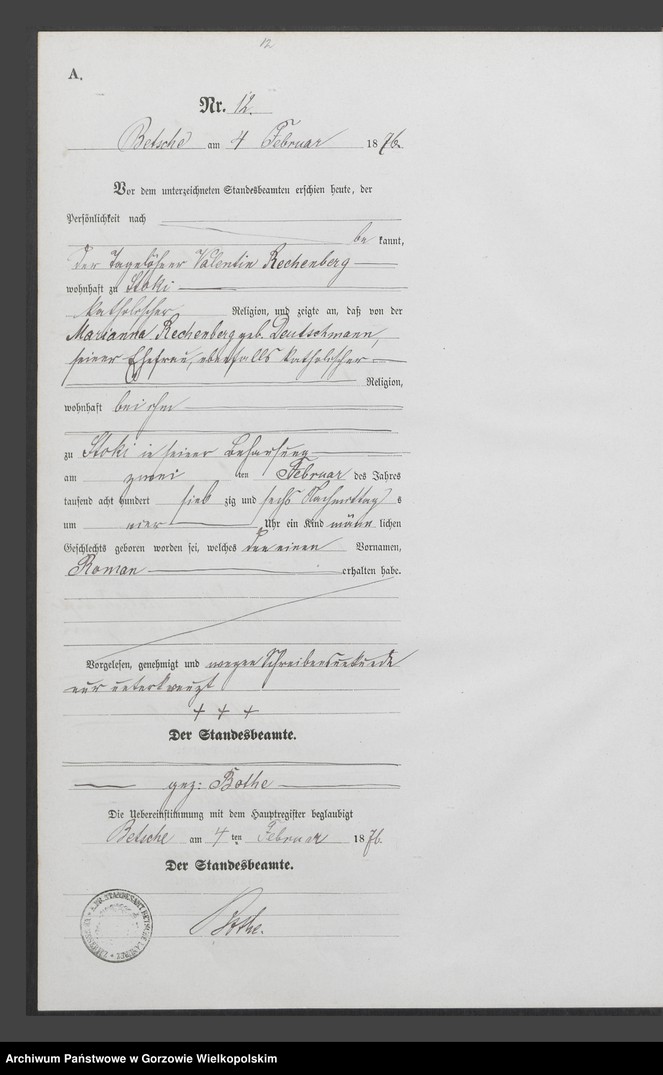 12
A.
Nr. 12.
Betsche am 4 Februar 1876.
Vor dem unterzeichneten Standesbeamten erschien heute, der
Persönlichkeit nach
bekannt,
der Tagelöhner Valentin Rechenberg
wohnhaft zu Stoki
katholischer Religion, und zeigte an, daß von der
Marianna Rechenberg geb. Deutschmann,
seiner Ehefrau, ebenfalls katholischer
Religion,
wohnhaft bei ihm
zu Stoki in seiner Behausung
am zwei ten Februar des Jahres
tausend acht hundert sieb zig und sechs Nachmittag s
um vier Uhr ein Kind männ lichen
Geschlechts geboren worden sei, welches den einen Vornamen,
Roman erhalten habe.
Vorgelesen, genehmigt und wegen Schreibensunkunde
nur unterkreuzt
+ + +
Der Standesbeamte.
gez: Bothe
Die Uebereinstimmung mit dem Hauptregister beglaubigt
Betsche am 4 ten Februar 1876.
Der Standesbeamte.
Bothe.
Archiwum Państwowe w Gorzowie Wielkopolskim